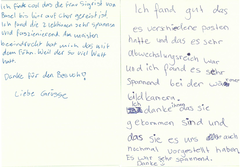 Ich fande cool das die frau Siegrist von
Basel bis hier auf Uhr gereist ist.
Ich fand die 2 Lektionen sehr spannend
und faszinierend. Am meisten
beeindruckt hat mich das mit
dem Föhn. Weil der so viel Watt
hatt.
Danke für den Besuch!
Liebe Grüsse
Ich fand gut das
es verschiedene posten
hatte und das es sehr
abwechslungsreich war
und ich fand es sehr
spannend bei der wärmer
bildkamera.
Ich danke ihnen das sie
gekommen sind und
das sie es uns auch
nochmal vorgestellt haben.
Es war sehr spannend.
Danke